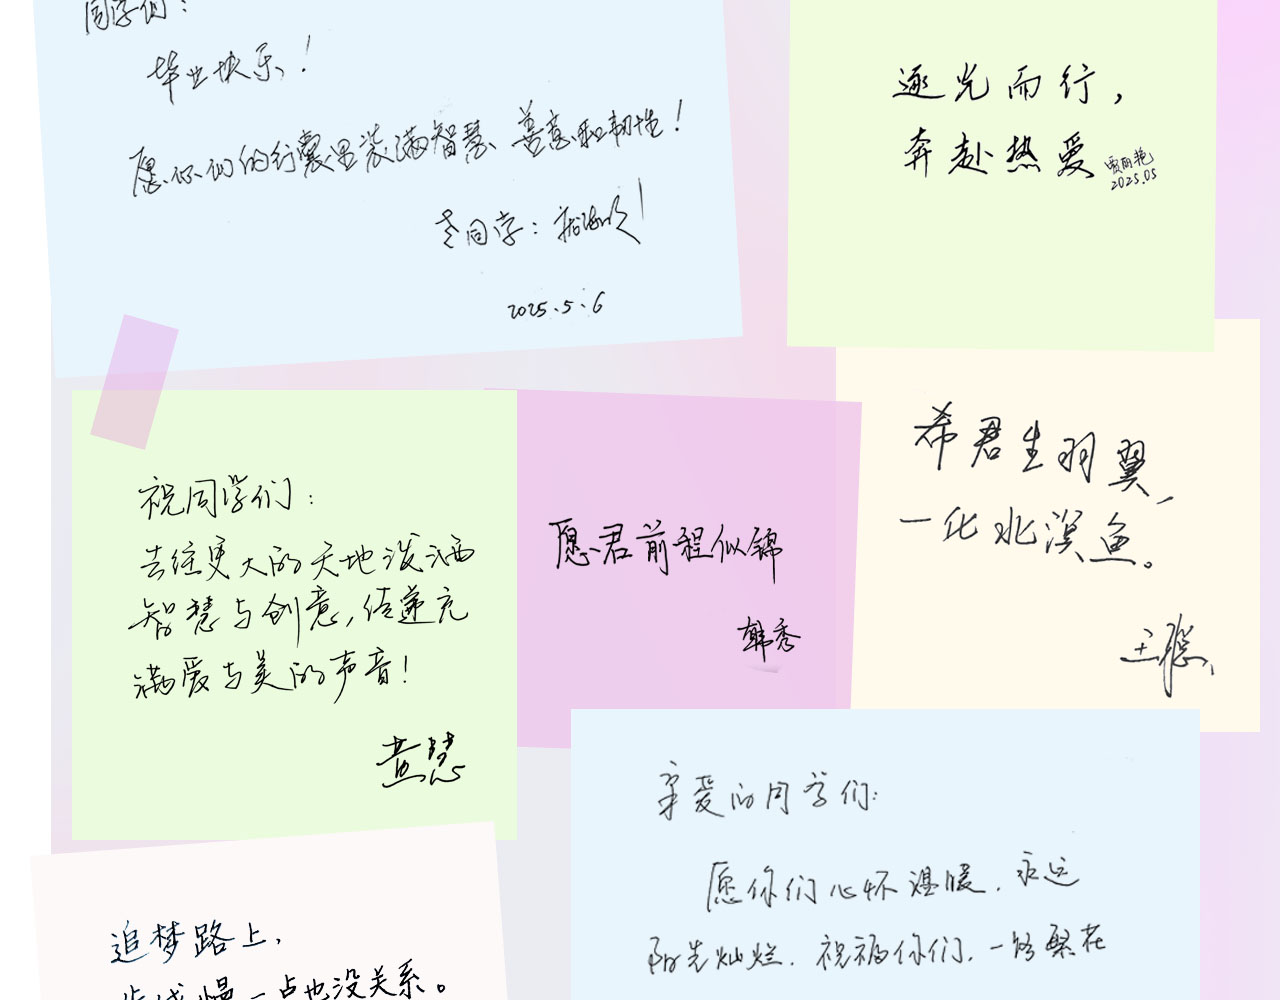 同学们：
毕业快乐！
愿你们的行囊里装满智慧、善意和韧性！
老同学：
2025.5.6
逐光而行，
奔赴热爱
贾丽艳
2025.05
祝同学们：
去往更大的天地泼洒
智慧与创意,传递充
满爱与美的声音！
黄慧
愿君前程似锦
韩秀
希君生羽翼，
一化北溟鱼。
王聪
亲爱的同学们:
愿你们心怀温暖.永远
阳光灿烂.祝福你们,一路繁花
追梦路上,
步伐慢一点也没关系。